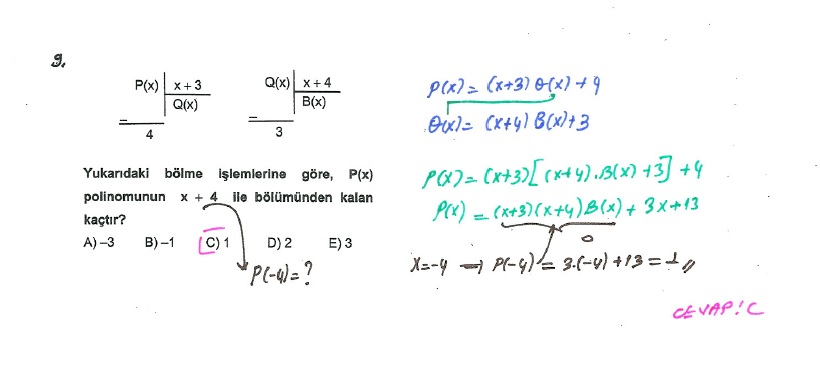 9.
P(x) | x + 3
Q(x)
4
Q(x) | x + 4
B(x)
3
Yukarıdaki bölme işlemlerine göre, P(x)
polinomunun x + 4 ile bölümünden kalan
kaçtır?
A) –3 B) –1 C) 1 D) 2 E) 3
P(-4) = ?
P(x) = (x+3) Q(x) + 4
Q(x) = (x+4) B(x) + 3
P(x) = (x+3)[(x+4).B(x) + 3] + 4
P(x) = (x+3)(x+4)B(x) + 3x+13
0
x=-4 → P(-4) = 3.(-4) + 13 = 1 //
CEVAP: C